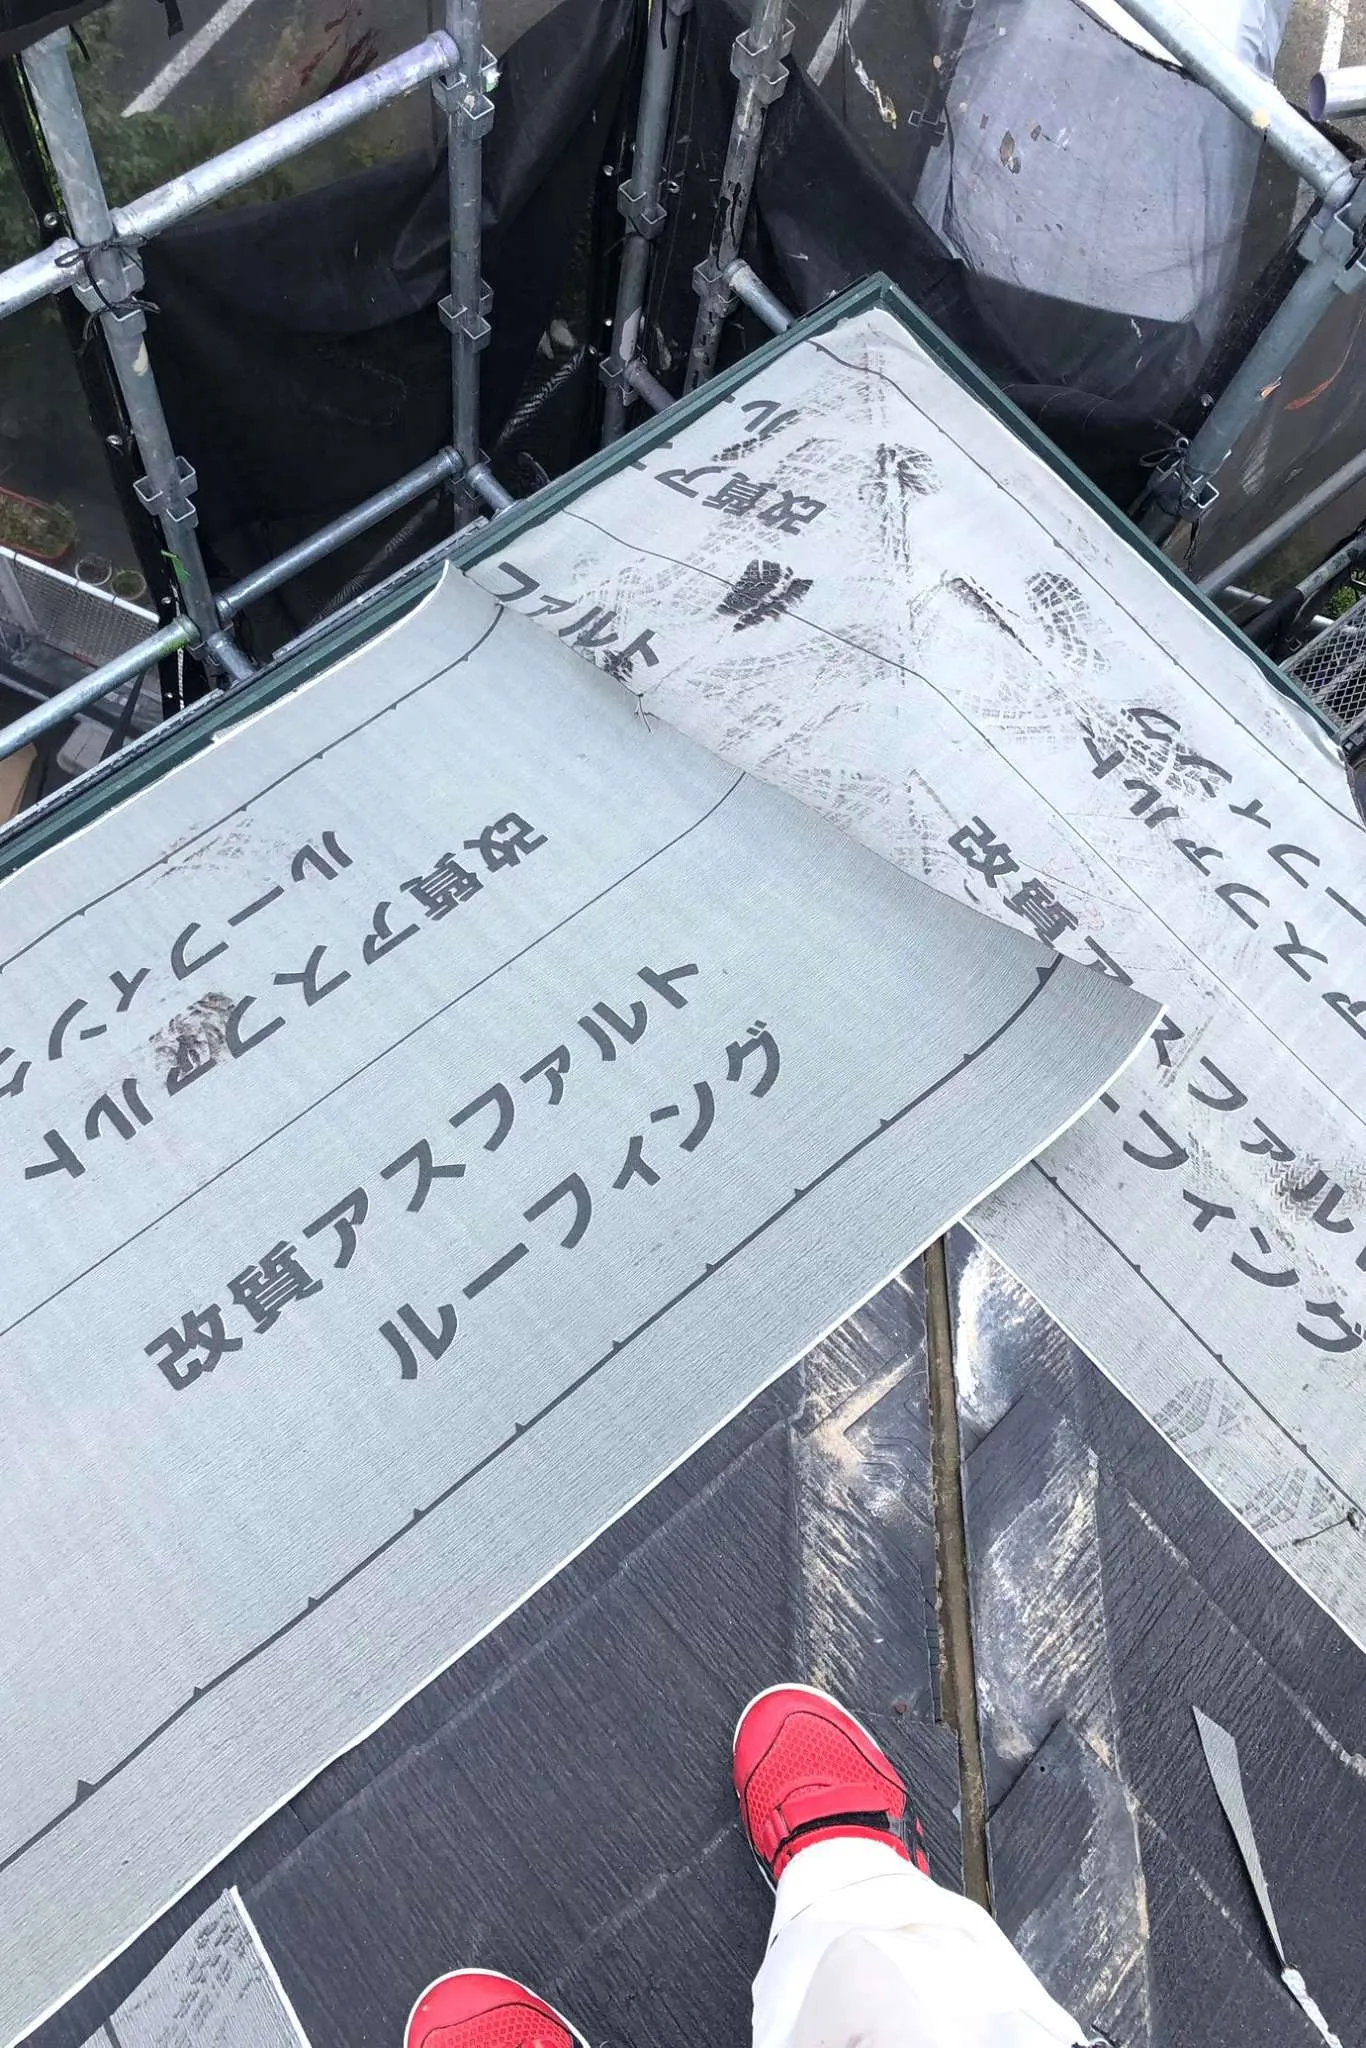 改質アスファルト
ルーフィング
改質アスファルト
ルーフィング
改質アスファルト
ルーフィング
アスファルト
フィング
改質ア
アルト
ィング